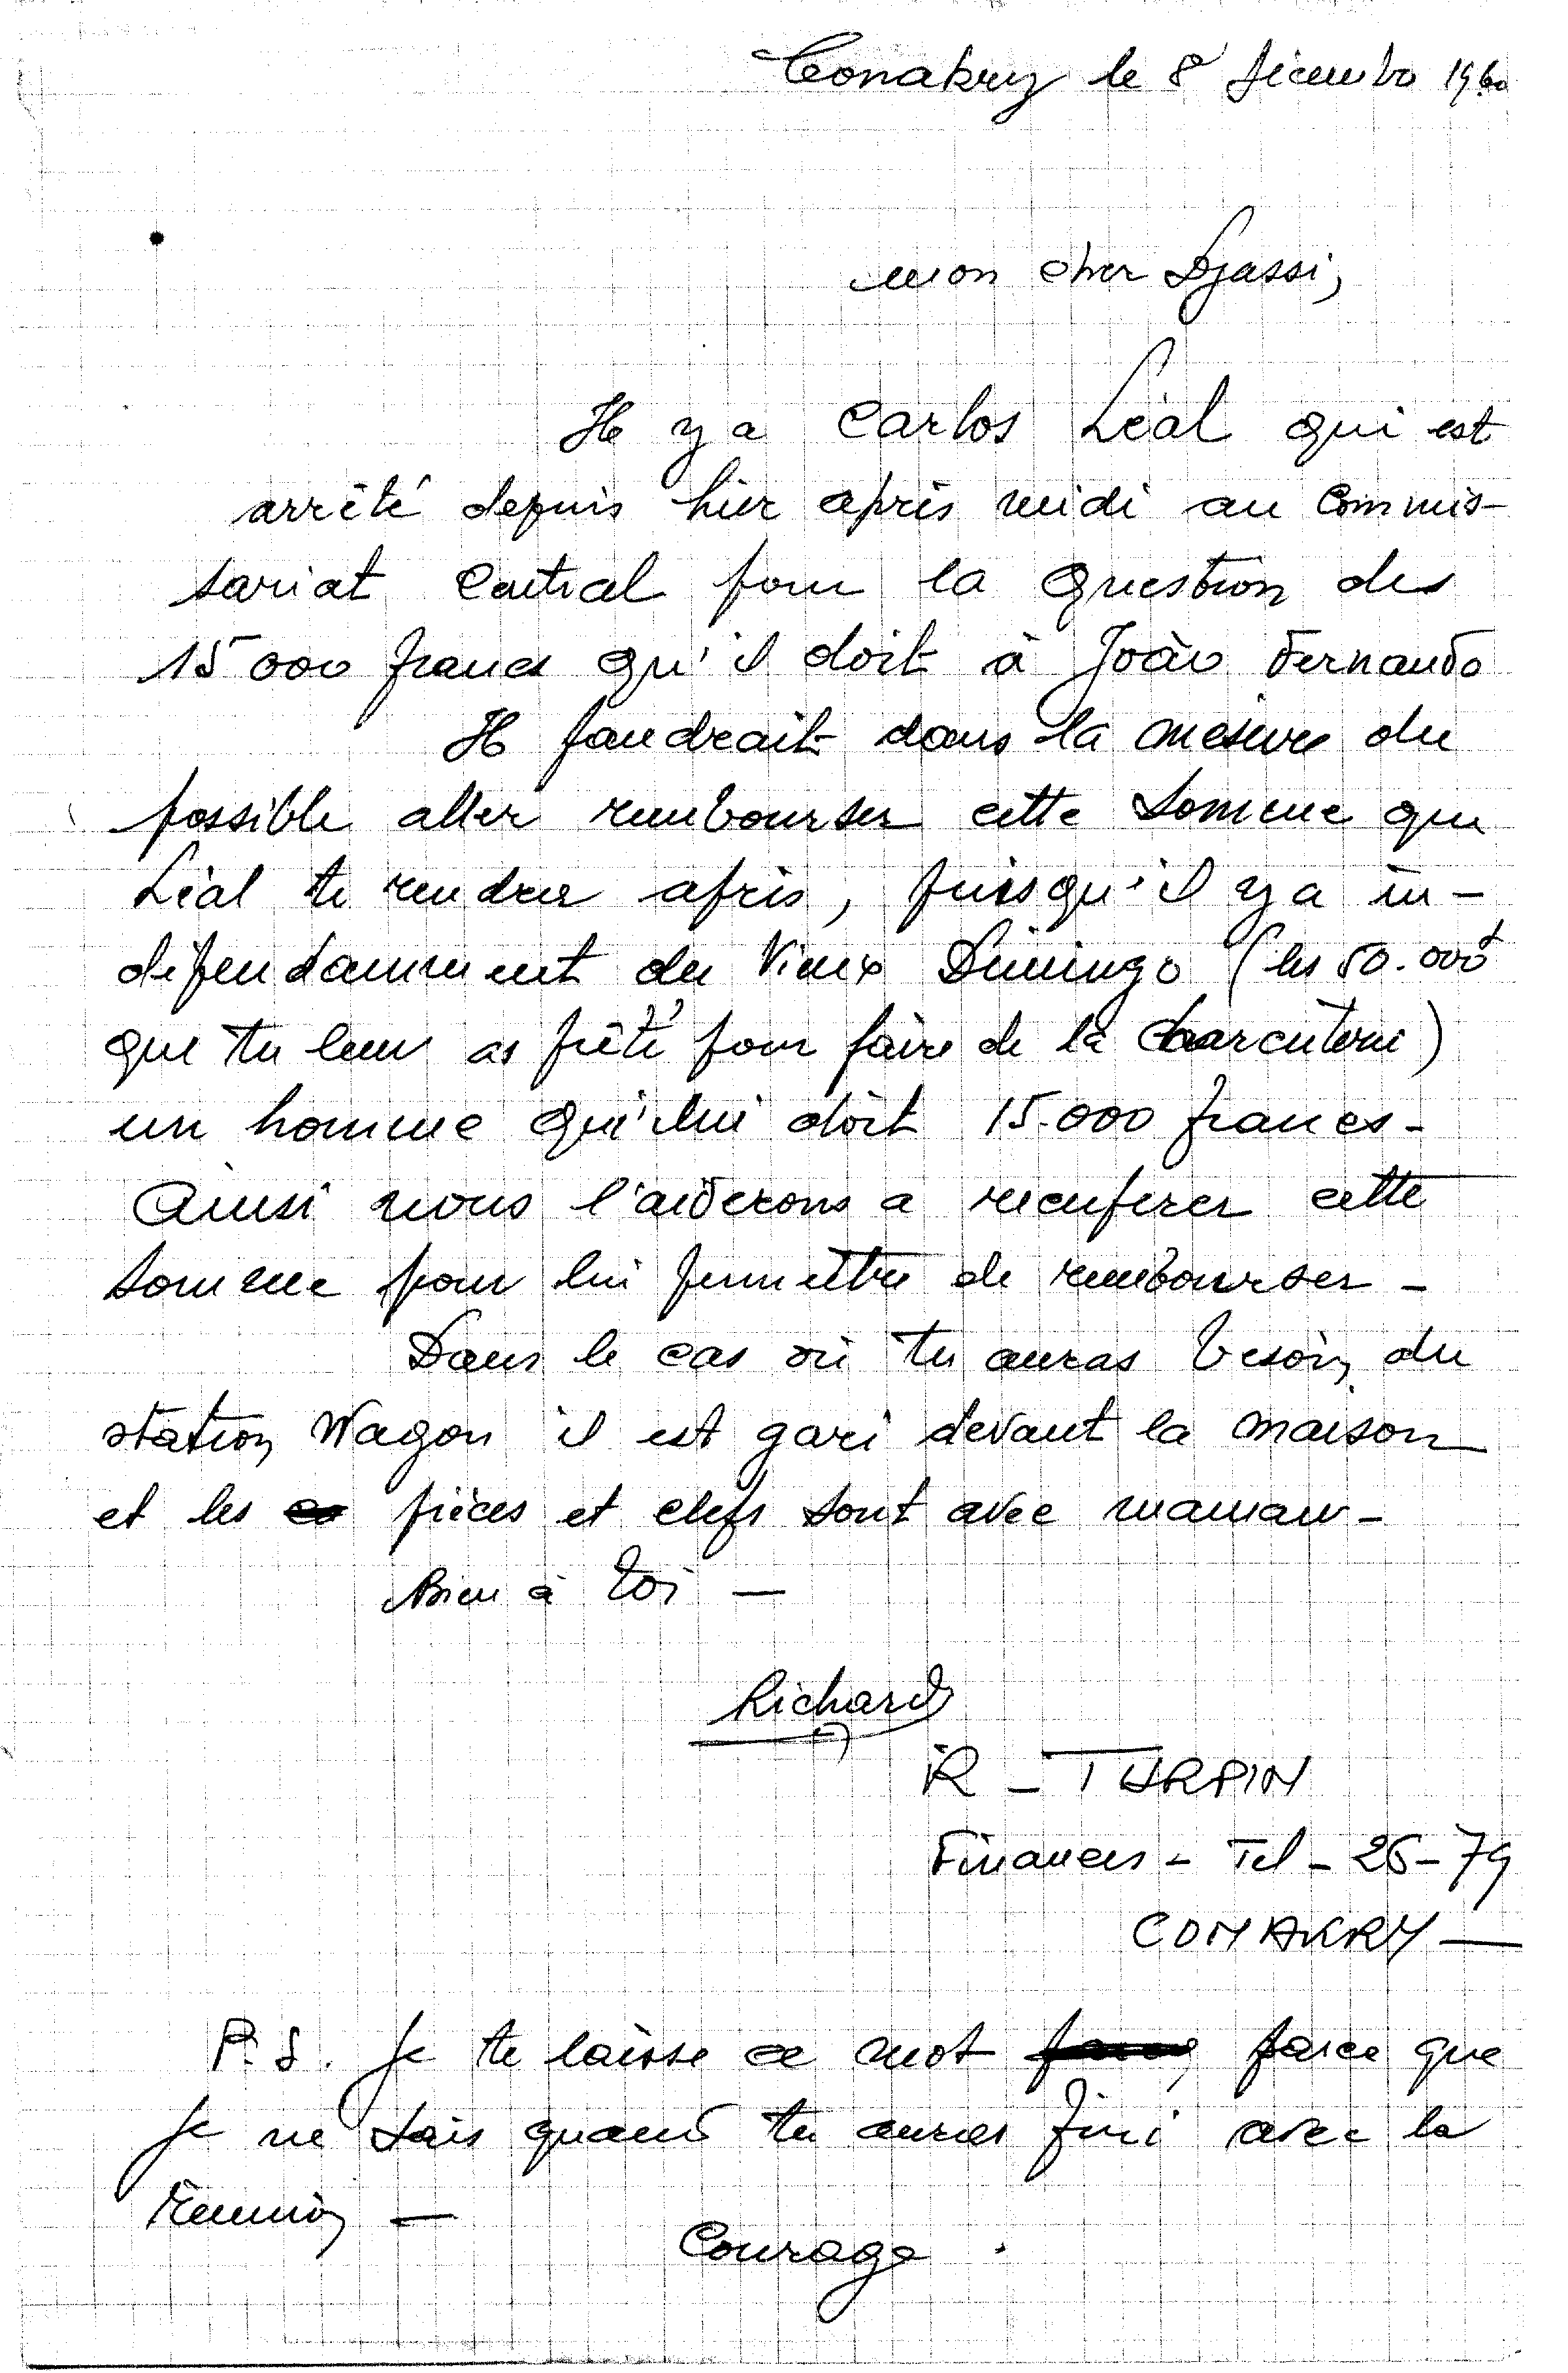 Conakry le 8 décembre 1960
mon cher Djassi,
Il y a Carlos Léal qui est
arrêté depuis hier après midi au Commis-
sariat Central pour la question des
15 000 francs qu'il doit à João Fernando
Il faudrait dans la mesure du
possible aller rembourser cette somme que
Léal te rendra après, puisqu'il y a in-
dépendamment du Vieux Dimingo (les 50.000f
que tu leur as prêté pour faire de la charcuterie)
un homme qui lui doit 15.000 francs -
Ainsi nous l'aiderons a recupérer cette
somme pour lui permettre de rembourser -
Dans le cas où tu auras besoin du
station Wagon il est garé devant la maison
et les pièces et clefs sont avec maman -
Bien à toi -
Richard
R - TURPIN
Finances - Tel - 26-79
CONAKRY -
P.S. Je te laisse ce mot parce que
je ne sais quand tu auras fini avec la
réunion -
Courage.